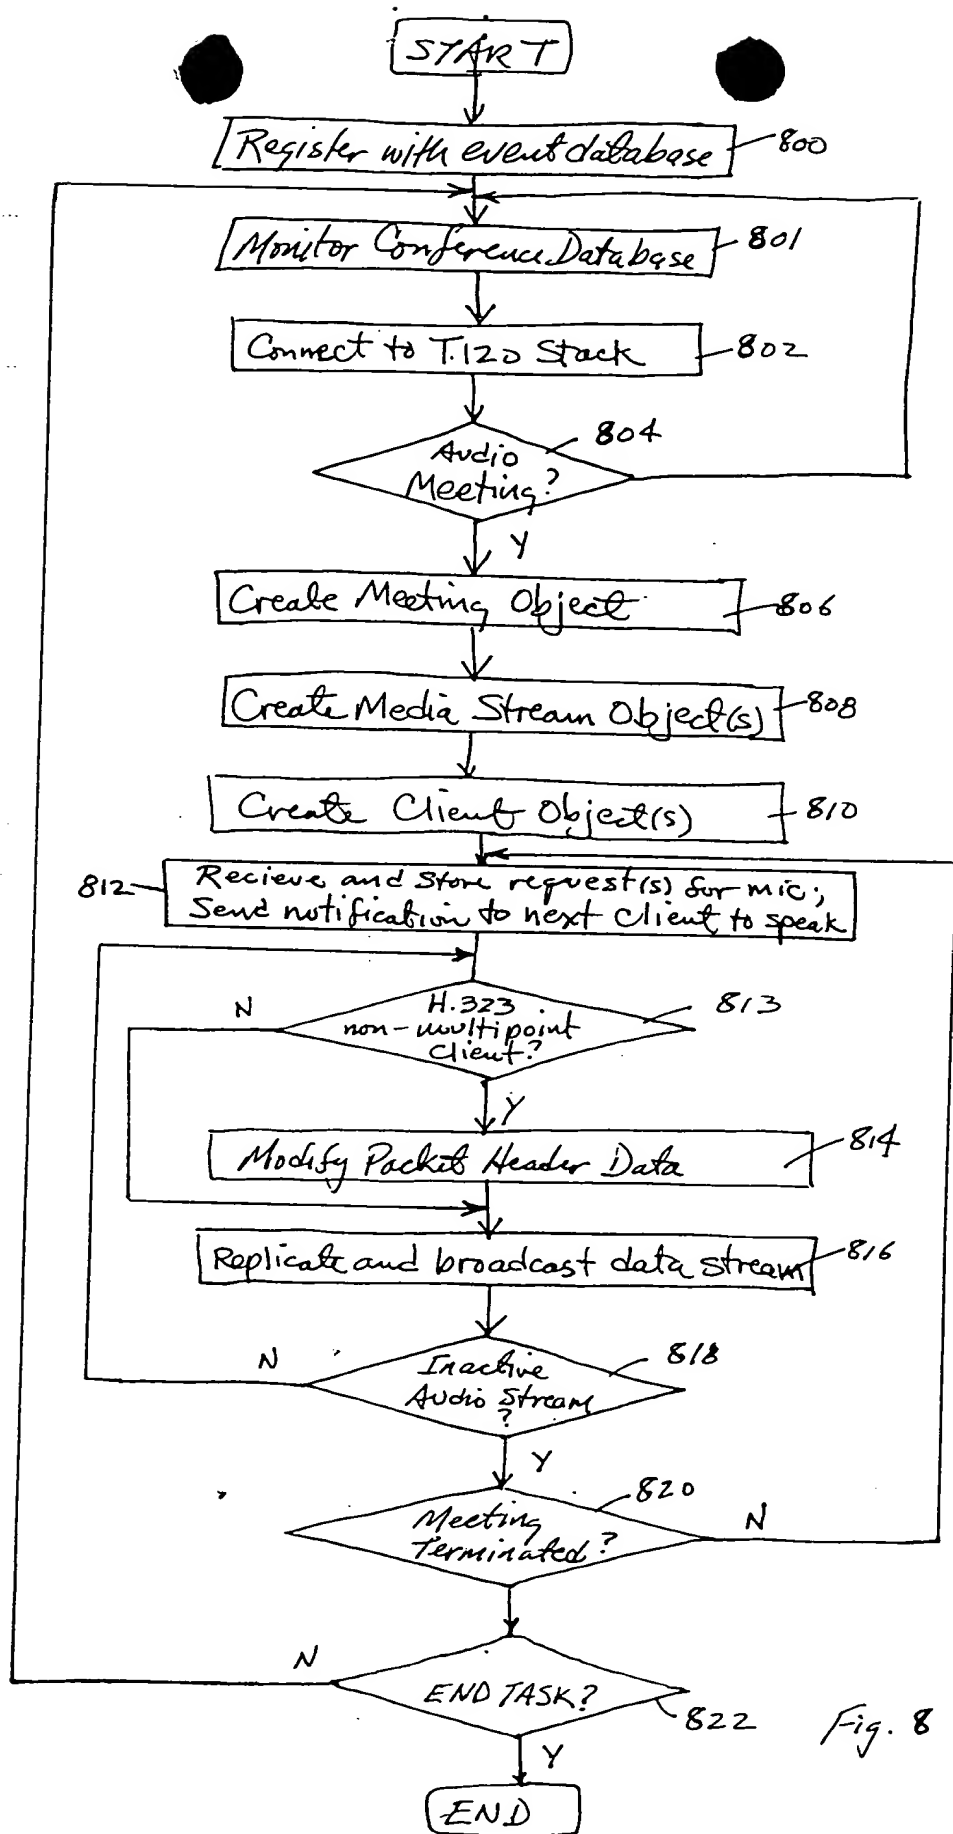 START
Register with event database
800
Monitor Conference Database
801
Connect to T.120 Stack
802
804
Audio
Meeting?
Y
Create Meeting Object
806
Create Media Stream Object(s)
808
Create Client Object(s)
810
812
Recieve and Store request(s) for mic;
Send notification to next client to speak
N
H.323
non-multipoint
client?
813
Y
Modify Packet Header Data
814
Replicate and broadcast data stream
816
N
Inactive
Audio Stream
?
818
Y
820
Meeting
Terminated?
N
N
END TASK?
822
Fig. 8
Y
END